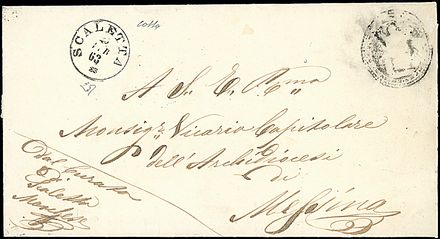 SCALETTA
63
A S. E. Rma
Monsigr Vicario Capitolare
dell'Archidiocesi
di
Messina
Dal Curato
di
Scaletta